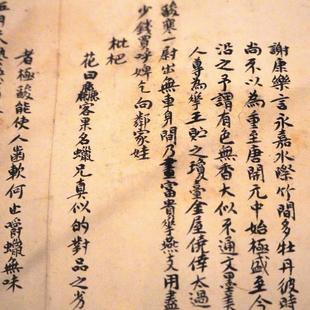 謝康樂言永嘉水際竹間多牡丹彼時
尚不以為重至唐開元中始極盛至今
沿之予謂有色無香大似不通文墨
人專為學王貯之瓊臺金屋僥倖太過
酸寒一尉出無車身閒乃畫富貴學燕支用盡
少錢買呼婢乞向鄰家娃
枇杷
花田客果名蠟兄真似的對品之劣
者極酸能使人齒軟何止嚼蠟無味